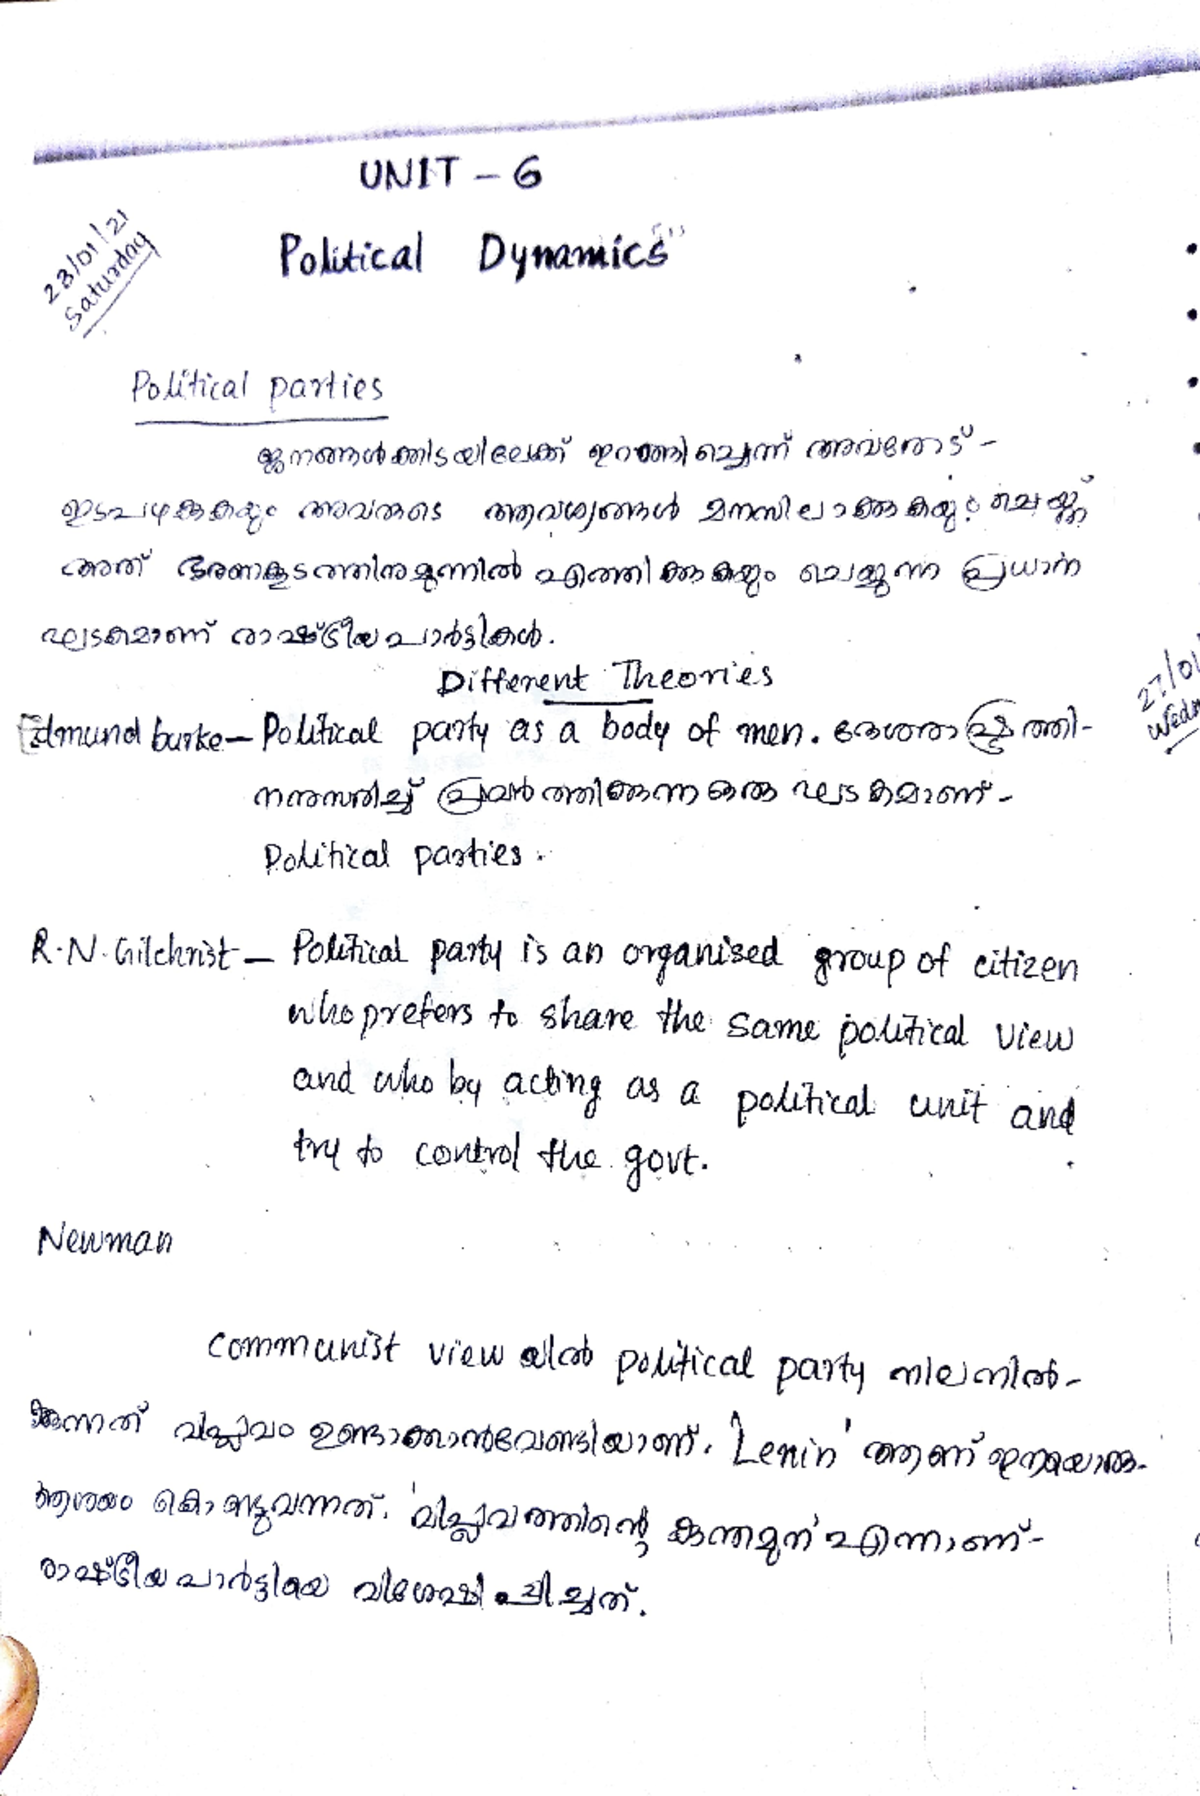 UNIT - 6
23/01/21
Saturday
Political Dynamics
Political parties
ജനങ്ങൾക്കിടയിലേക്ക് ഇറങ്ങിച്ചെന്ന് അവരോട് -
ഇടപഴകുകയും അവരുടെ ആവശ്യങ്ങൾ മനസിലാക്കുകയും ചെയ്ത്
അത് ഭരണകൂടത്തിനുമുന്നിൽ എത്തിക്കുകയും ചെയ്യുന്ന പ്രധാന
ഘടകമാണ് രാഷ്ട്രീയ പാർട്ടികൾ.
Different Theories
Edmund burke - Political party as a body of men. ദേശതാല്പര്യത്തി-
നനുസരിച്ച് പ്രവർത്തിക്കുന്ന ഒരു ഘടകമാണ് -
Political parties.
R.N. Gilchrist - Political party is an organised group of citizen
who prefers to share the same political view
and who by acting as a political unit and
try to control the govt.
Newman
Communist view യിൽ political party നിലനിൽ-
ക്കുന്നത് വിപ്ലവം ഉണ്ടാക്കാൻവേണ്ടിയാണ്. 'Lenin' ആണ് ഇങ്ങനെയൊരു
ആശയം കൊണ്ടുവന്നത്. 'വിപ്ലവത്തിന്റെ കുന്തമുന' എന്നാണ് -
രാഷ്ട്രീയ പാർട്ടിയെ വിശേഷിപ്പിച്ചത്.
27/01
Wedn